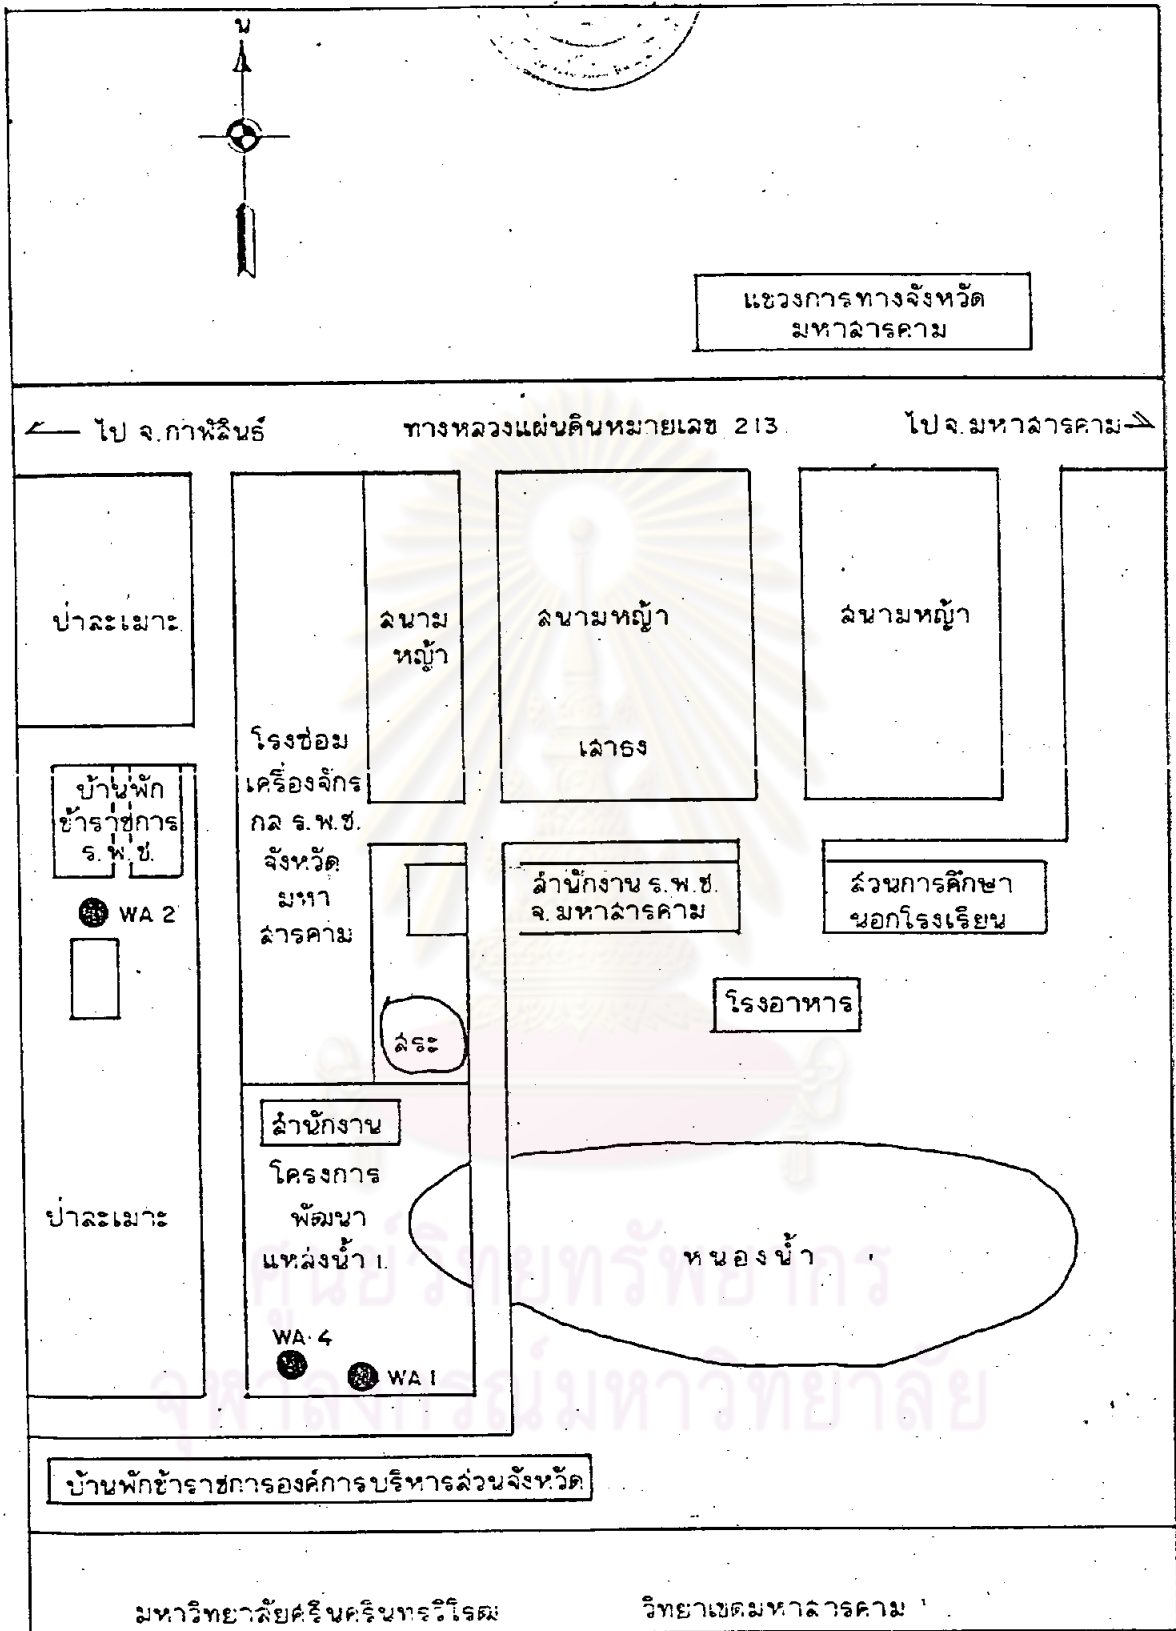 น
แขวงการทางจังหวัด
มหาสารคาม
ไป จ.กาฬสินธุ์
ทางหลวงแผ่นดินหมายเลข 213
ไป จ.มหาสารคาม
ป่าละเมาะ
สนาม
หญ้า
สนามหญ้า
สนามหญ้า
เสาธง
โรงซ่อม
เครื่องจักร
กล ร.พ.ช.
จังหวัด
มหา
สารคาม
บ้านพัก
ข้าราชการ
ร.พ.ช.
WA 2
สำนักงาน ร.พ.ช.
จ.มหาสารคาม
ส่วนการศึกษา
นอกโรงเรียน
โรงอาหาร
สระ
สำนักงาน
โครงการ
พัฒนา
แหล่งน้ำ 1.
ป่าละเมาะ
หนองน้ำ
WA 4
WA 1
ศูนย์วิทยทรัพยากร
จุฬาลงกรณ์มหาวิทยาลัย
บ้านพักข้าราชการองค์การบริหารส่วนจังหวัด
มหาวิทยาลัยศรีนครินทรวิโรฒ วิทยาเขตมหาสารคาม